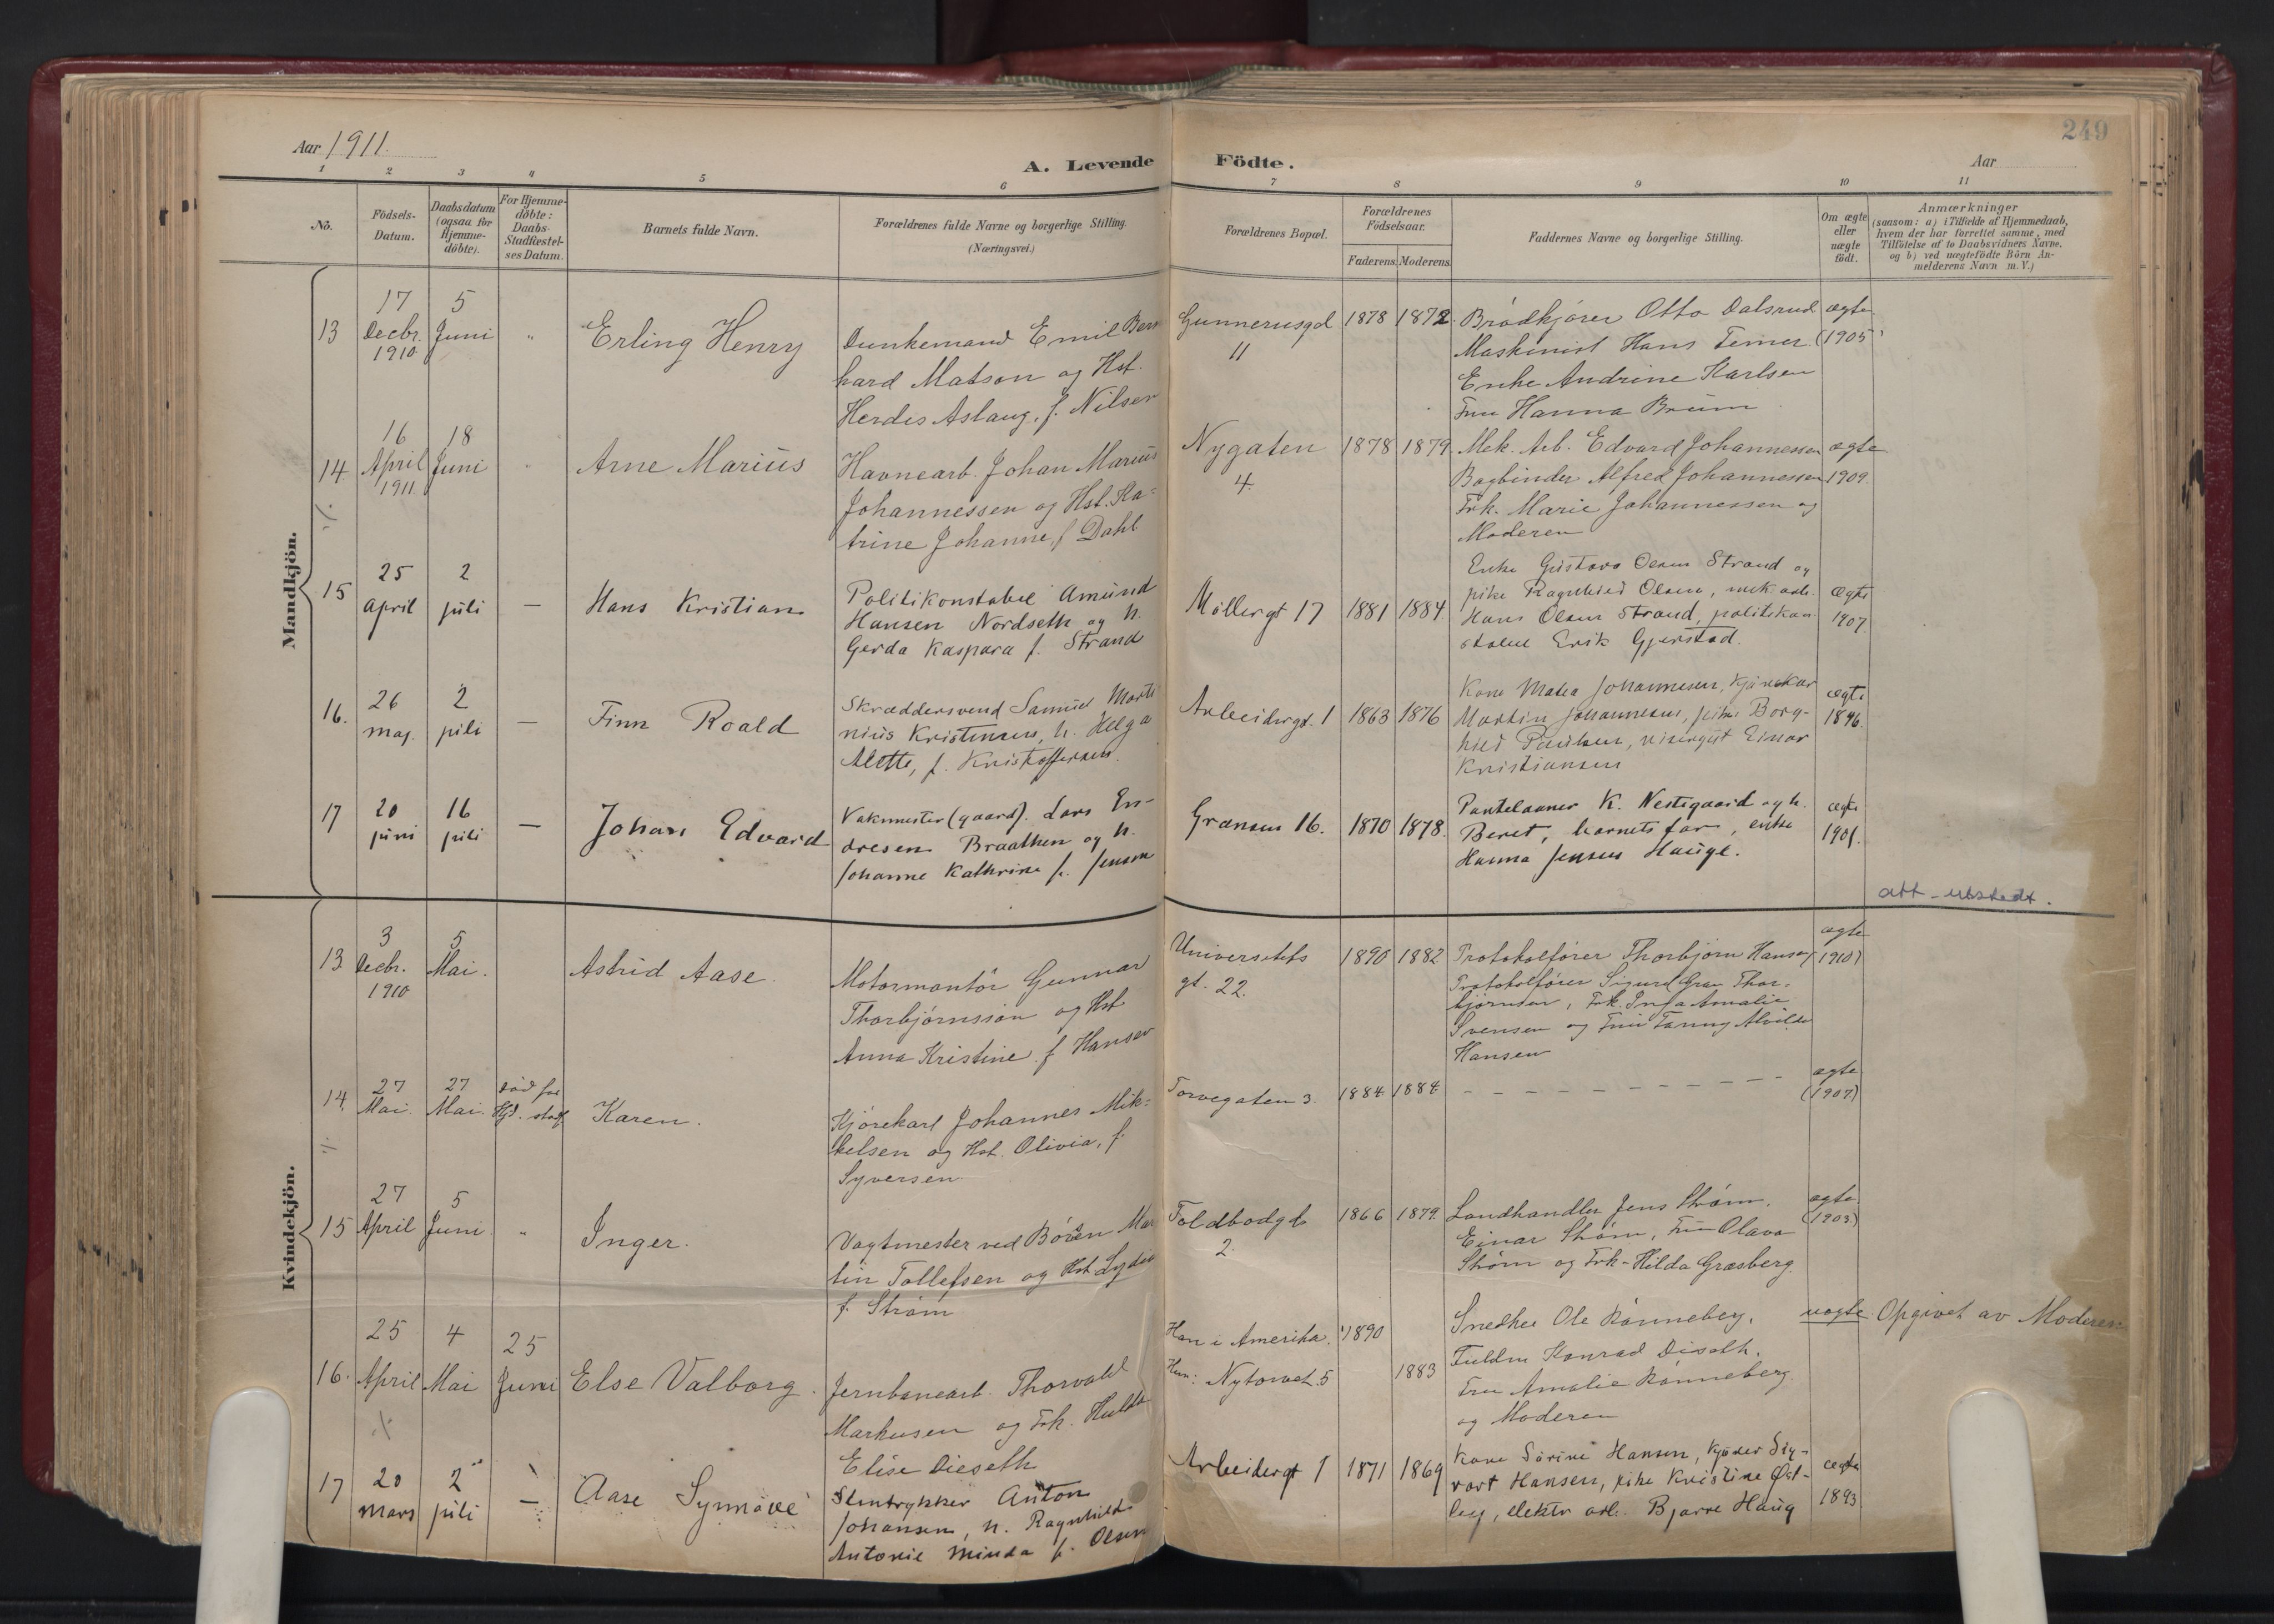 249
Aar 1911.
A. Levende Födte.
Aar
1 2 3 4 5 6 7 8 9 10 11
No.
Födsels-
Datum.
Daabsdatum
(ogsaa for
Hjemme-
döbte).
For Hjemme-
döbte:
Daabs-
Stadfæstel-
ses Datum.
Barnets fulde Navn.
Forældrenes fulde Navne og borgerlige Stilling.
(Næringsvei.)
Forældrenes Bopæl.
Forældrenes
Födselsaar.
Faderens. Moderens.
Faddernes Navne og borgerlige Stilling.
Om ægte
eller
uægte
födt.
Anmærkninger
(saasom: a) i Tilfælde af Hjemmedaab,
hvem der har forrettet samme, med
Tilföielse af to Daabsvidners Navne.
og b) ved uægtefödte Börn An-
melderens Navn m. V.)
Mandkjön.
13
17
Decbr.
1910
5
Juni
"
Erling Henry
Dunkemand Emil Bern
hard Matson og Hst.
Herdis Aslaug, f. Nilsen
Gunnerusgd
11
1878 1872.
Brödkjörer Otto Dalsrud
Maskinist Hans Temer
Enke Andrine Karlsen
Fru Hanna Bruun
ægte
(1905)
14
16
April
1911
18
Juni
Arne Marius
Havnearb. Johan Marius
Johannessen og Hst. Ka=
trine Johanne, f. Dahl
Nygaten
4.
1878 1879.
Mek. Arb. Edvard Johannessen
Bogbinder Alfred Johannessen
Frk. Marie Johannessen og
Moderen
ægte
1909.
15
25
april
2
juli
—
Hans Kristian
Politikonstabel Amund
Hansen Nordseth og h.
Gerda Kaspara f. Strand
Möllergt 17
1881 1884.
Enke Gustava Olsen Strand og
pike Ragnhild Olsen, mek. arb.
Hans Olsen Strand, politikon-
stabel Erik Gjerstad.
ægte
1907.
16.
26
maj.
2
juli
—
Finn Roald
Skræddersvend Samuel Marti
nius Kristensen, h. Helga
Alette, f. Kristoffersen.
Arbeidergt. 1
1863 1876
Kone Matea Johannesen, kjörekar
Martin Johannesen, pike Borg-
hild Paulsen, visergut Einar
Kristiansen
ægte
1896.
17
20
juni
16
juli
—
Johan Edvard
Vakmester (gaard). Lars En-
dresen Braathen og h.
Johanne Kathrine f. Jensen
Gransen 16.
1870 1878.
Pantelaaner K. Nestegaard og h.
Beret, barnets far, enke
Hanna Jensen Hauge.
ægte
1901.
att. utstedt.
Kvindekjön.
13
3
Decbr.
1910
5
Mai.
Astrid Aase.
Motormontör Gunnar
Thorbjörnsson og Hst
Anna Kristine f. Hansen
Universitets
gt. 22.
1890 1882
Protokolförer Thorbjörn Hansen
Protokolförer Sigurd Grav Thor-
björnsen, Frk. Inga Amalie
Svensen og Fru Fanny Alvilde
Hansen
ægte
(1910)
14.
27
Mai.
27
Mai.
död för
Hjd. stadf.
Karen.
Kjörekarl Johannes Mik-
kelsen og Hst. Olivia, f.
Syversen
Torvegaten 3.
1884 1884
– – – – – – – – – –
ægte
(1907)
15
27
April
5
Juni.
"
Inger.
Vagtmester ved Börsen Mar
tin Tollefsen og Hst Lydia
f. Ström
Toldbodgt
2.
1866 1879.
Landhandler Jens Ström.
Einar Ström, Fru Olava
Ström og Frk. Hilda Græsberg
ægte
(1903)
16.
25
April
4
Mai
25
Juni
Else Valborg.
Jernbanearb. Thorvald
Markusen og Frk. Hulda
Elise Dieseth
Han i Amerika.
Hun: Nytorvet 5
1890
1883
Snedker Ole Rönneberg.
Fuldm Konrad Diseth.
Fru Amalie Rönneberg.
og Moderen
uægte
Opgivet av Moderen
17
20
mars
2
juli
—
Aase Synnöve
Stentrykker Anton
Johansen, h. Ragnhild
Antonie Minda f. Olsen
Arbeidergt 1
1871 1869
Kone Sörine Hansen, kjörer Sig-
vart Hansen, pike Kristine Øst-
ley, elektr. arb. Bjarne Haug
ægte
1893